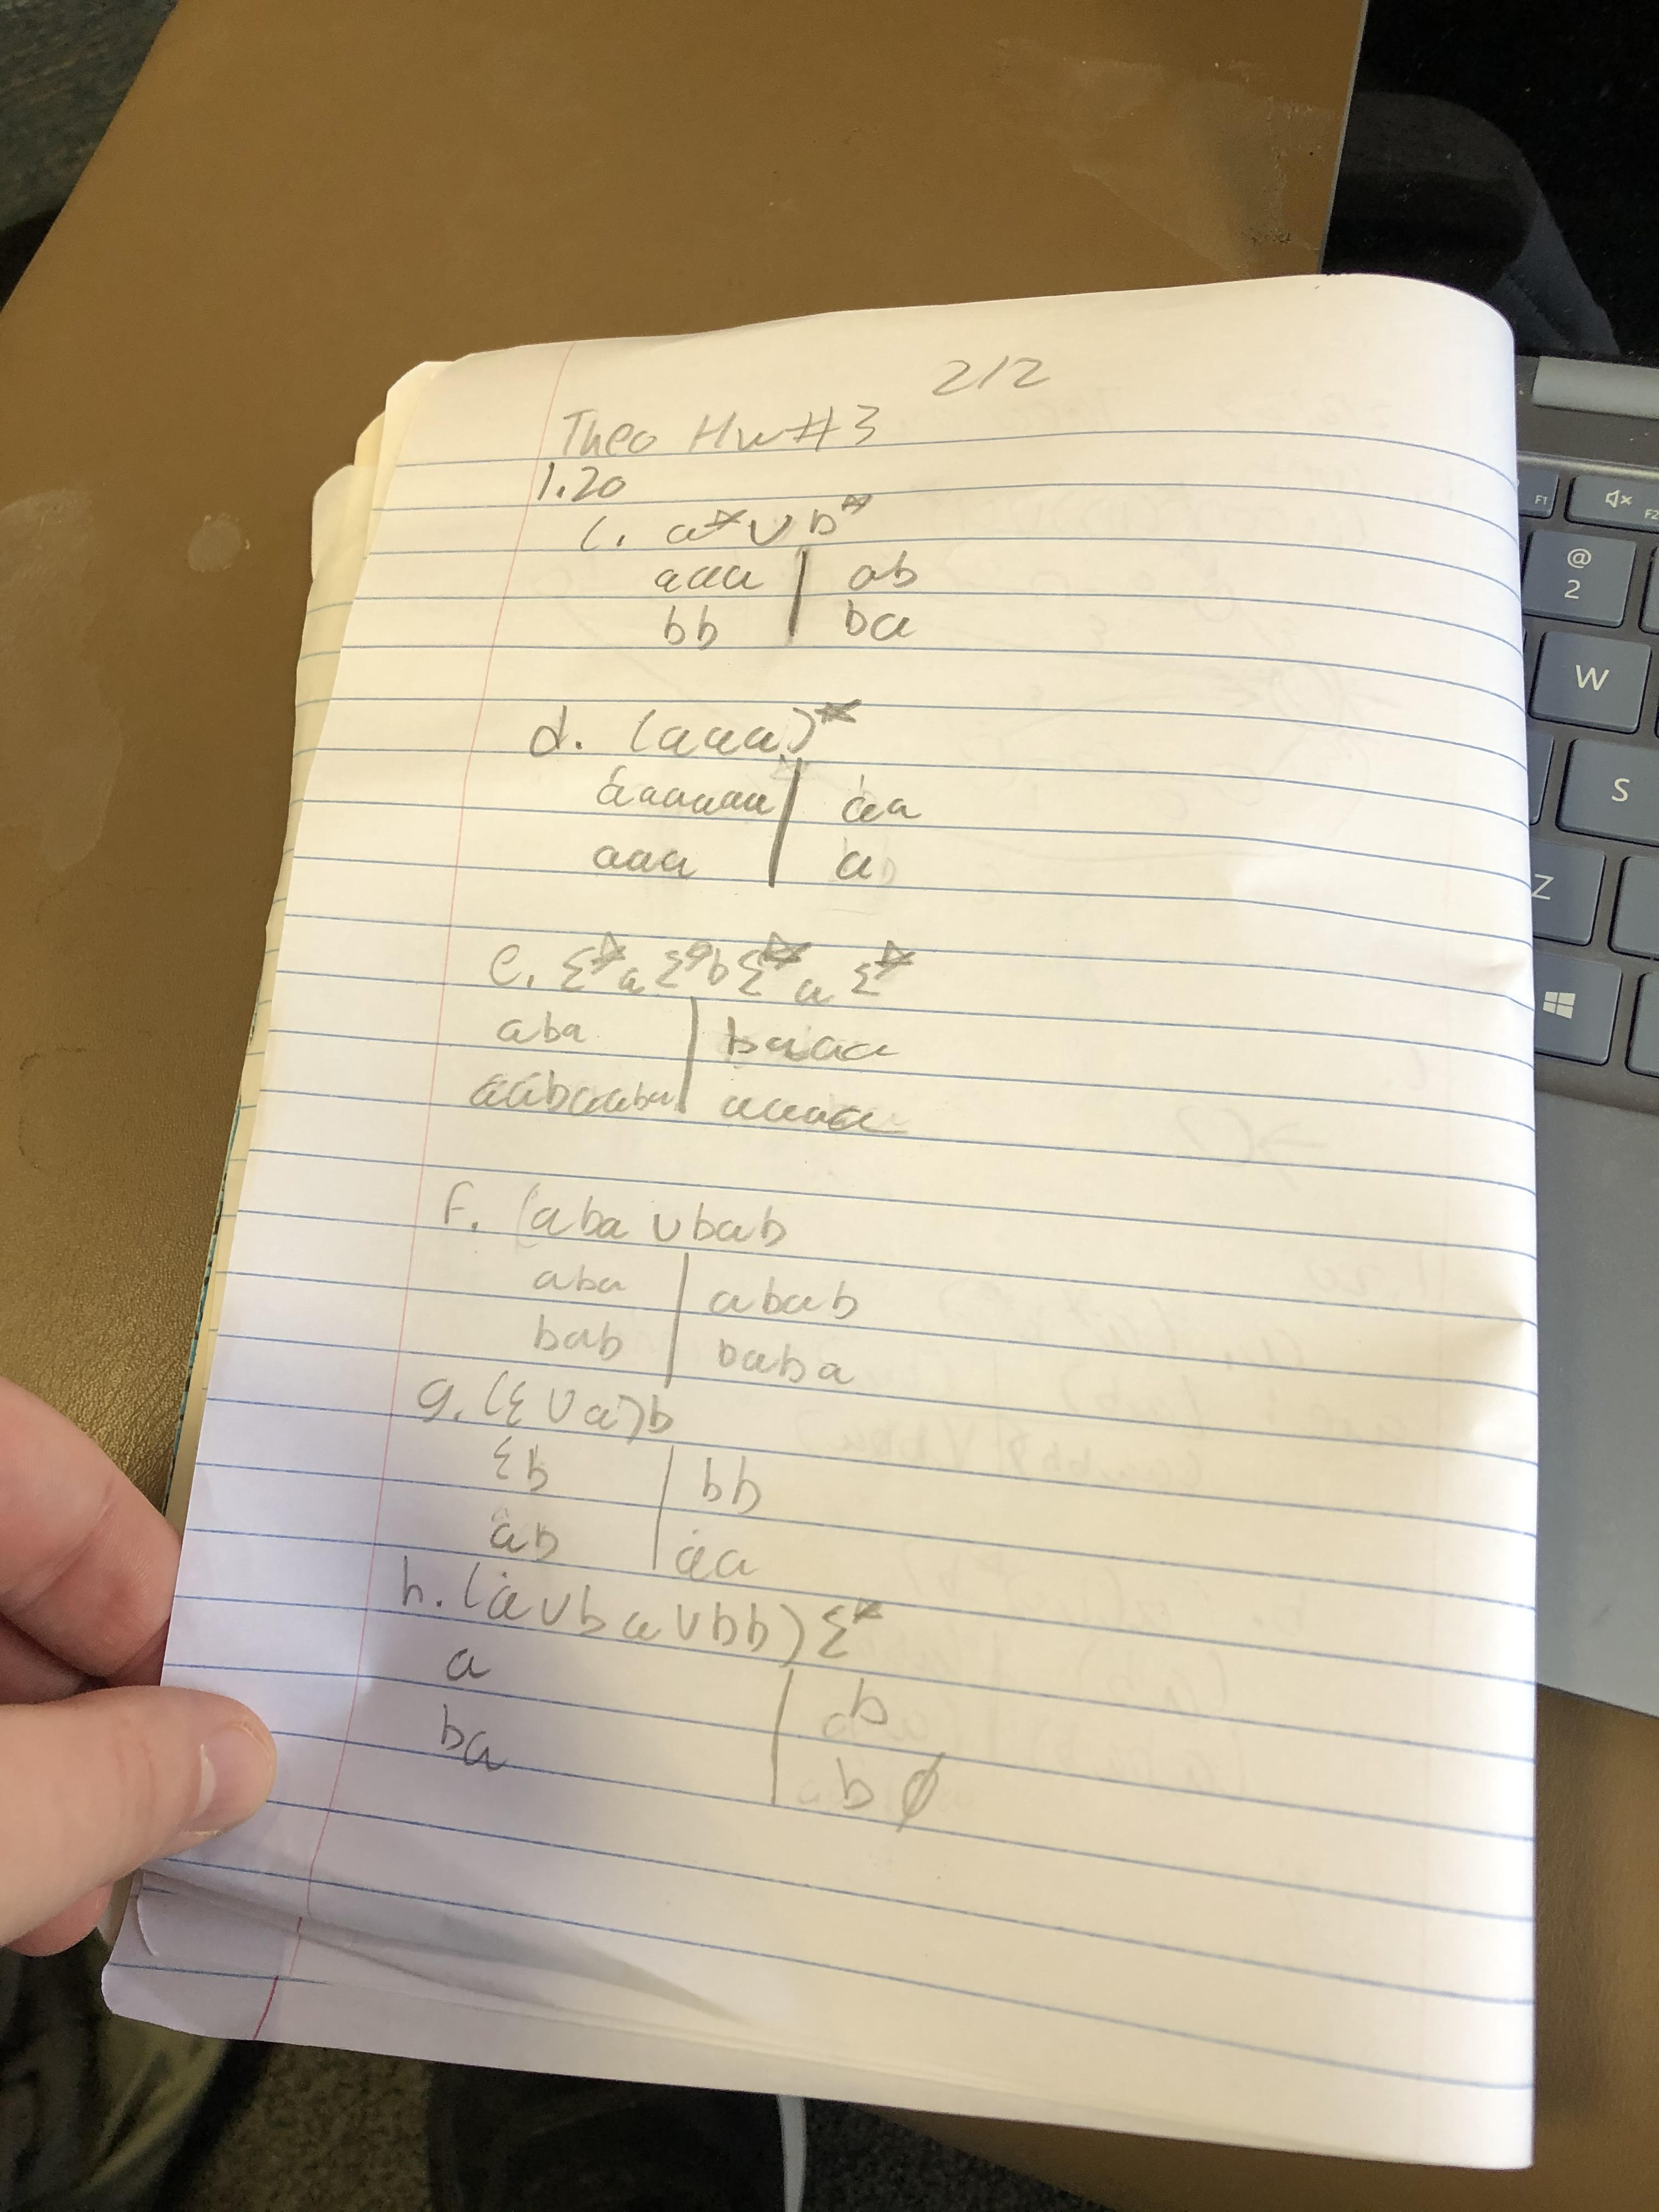 2/2
Theo Hw#3
1.20
c. a* ∪ b*
aaa | ab
bb | ba
d. (aaa)*
aaaaaa | aa
aaa | a
e. Σ*aΣ*bΣ*aΣ*
aba | baaa
aabaaba | aaaa
f. (aba ∪ bab
aba | abab
bab | baba
g. (ε ∪ a)b
εb | bb
ab | aa
h. (a ∪ ba ∪ bb) Σ*
a | b
ba | b ∅
F1
F2
@
2
W
S
Z